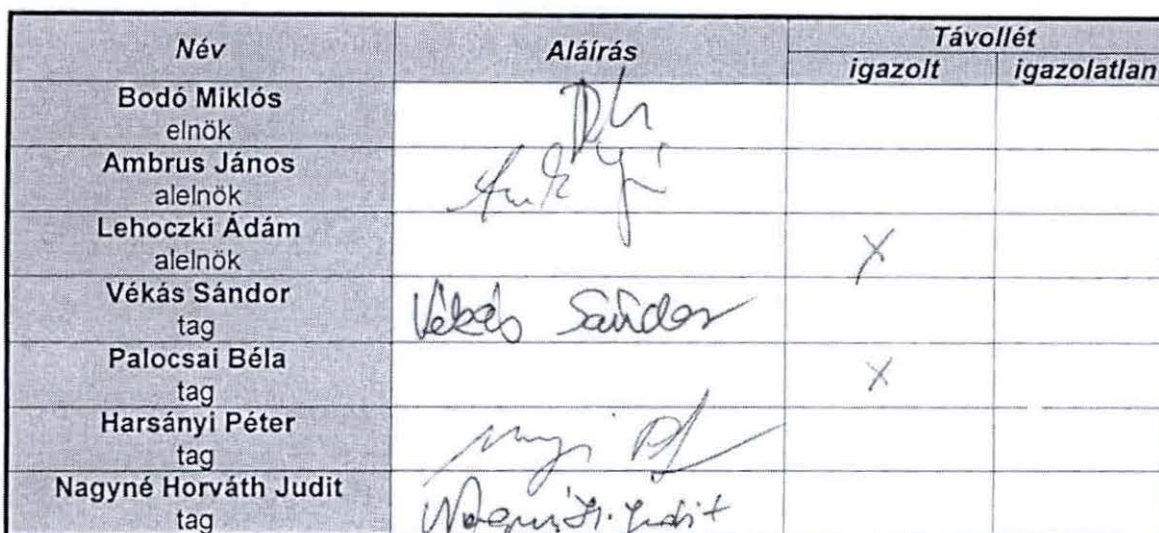 Név Aláírás Távollét
igazolt igazolatlan
Bodó Miklós
elnök
Ambrus János
alelnök
Lehoczki Ádám
alelnök X
Vékás Sándor Vékás Sándor
tag
Palocsai Béla
tag X
Harsányi Péter
tag
Nagyné Horváth Judit
tag Nagyné H. Judit